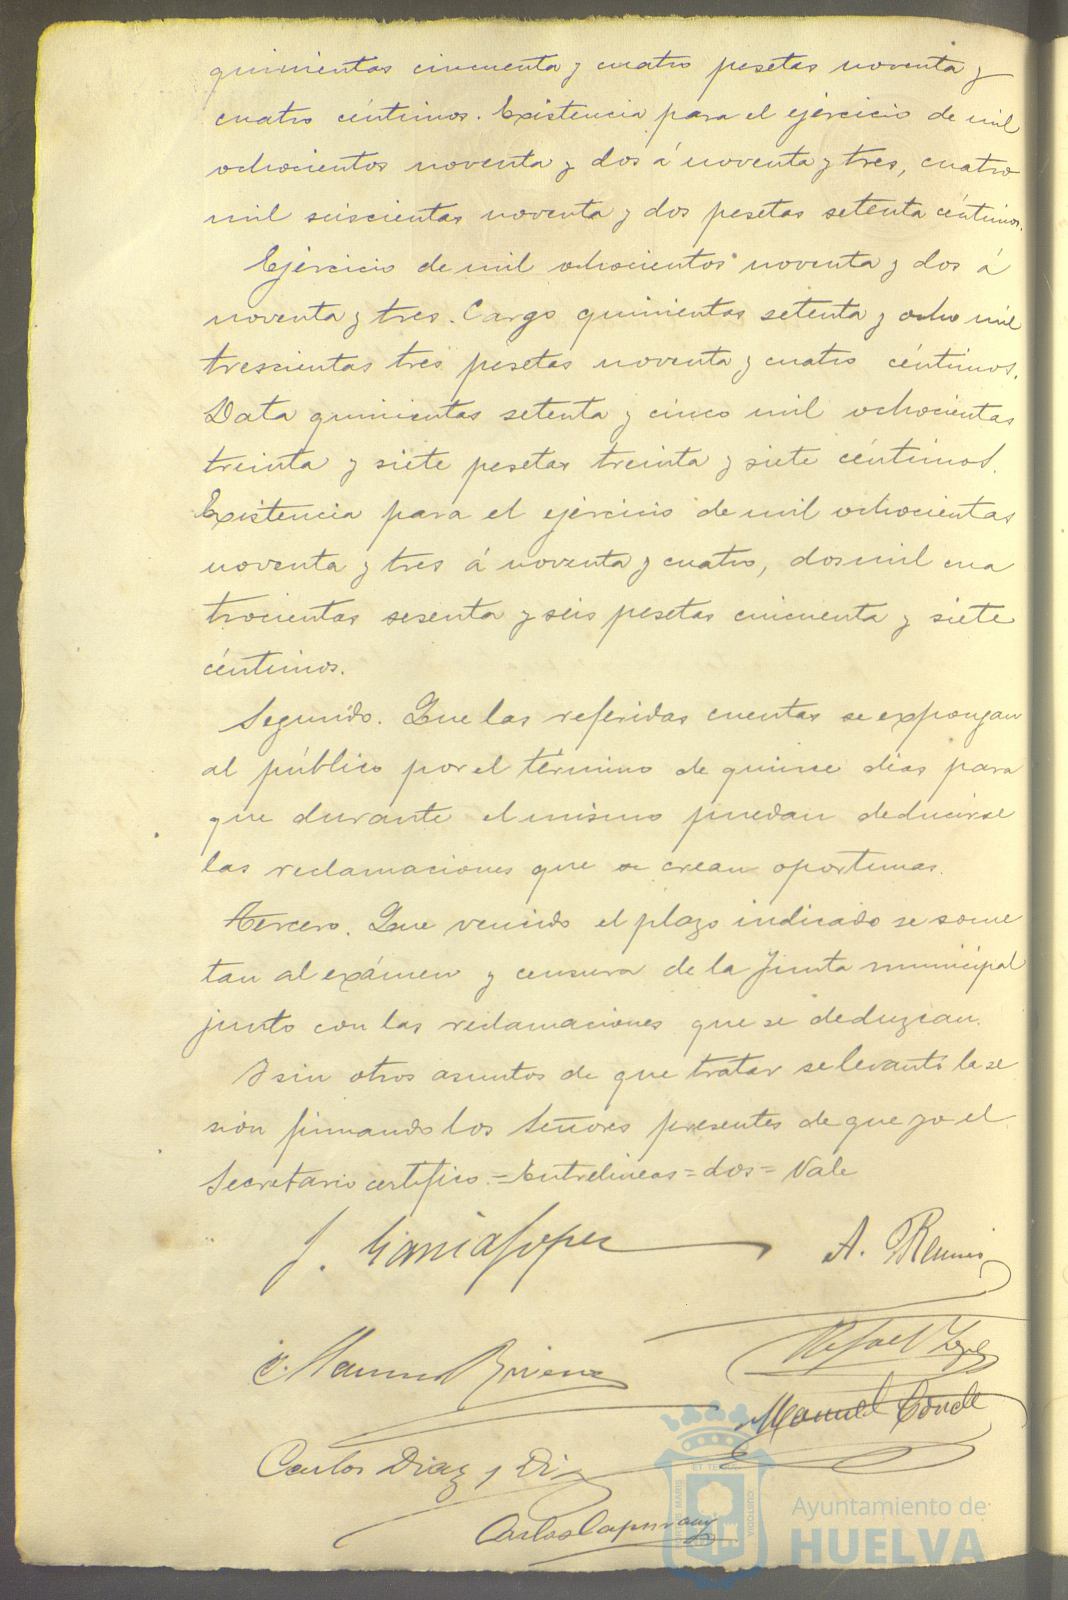 quinientas cincuenta y cuatro pesetas noventa y
cuatro céntimos. Existencia para el ejercicio de mil
ochocientos noventa y dos á noventa y tres, cuatro
mil seiscientas noventa y dos pesetas setenta céntimos.
Ejercicio de mil ochocientos noventa y dos á
noventa y tres. Cargo quinientas setenta y ocho mil
trescientas tres pesetas noventa y cuatro céntimos.
Data quinientas setenta y cinco mil ochocientas
treinta y siete pesetas treinta y siete céntimos.
Existencia para el ejercicio de mil ochocientas
noventa y tres á noventa y cuatro, dos mil cua
trocientas sesenta y seis pesetas cincuenta y siete
céntimos.
Segundo. Que las referidas cuentas se expongan
al público por el término de quince dias para
que durante el mismo puedan deducirse
las reclamaciones que se crean oportunas.
Tercero. Que vencido el plazo indicado se some
tan al exámen y censura de la Junta municipal
junto con las reclamaciones que se deduzcan.
Y sin otros asuntos de que tratar se levantó la se
sión firmando los Señores presentes de que yo el
Secretario certifico. = Entrelineas = dos = Vale
J. García López
A.
Rafael
Manuel Conde
Carlos Diaz y
Carlos
Ayuntamiento de
HUELVA